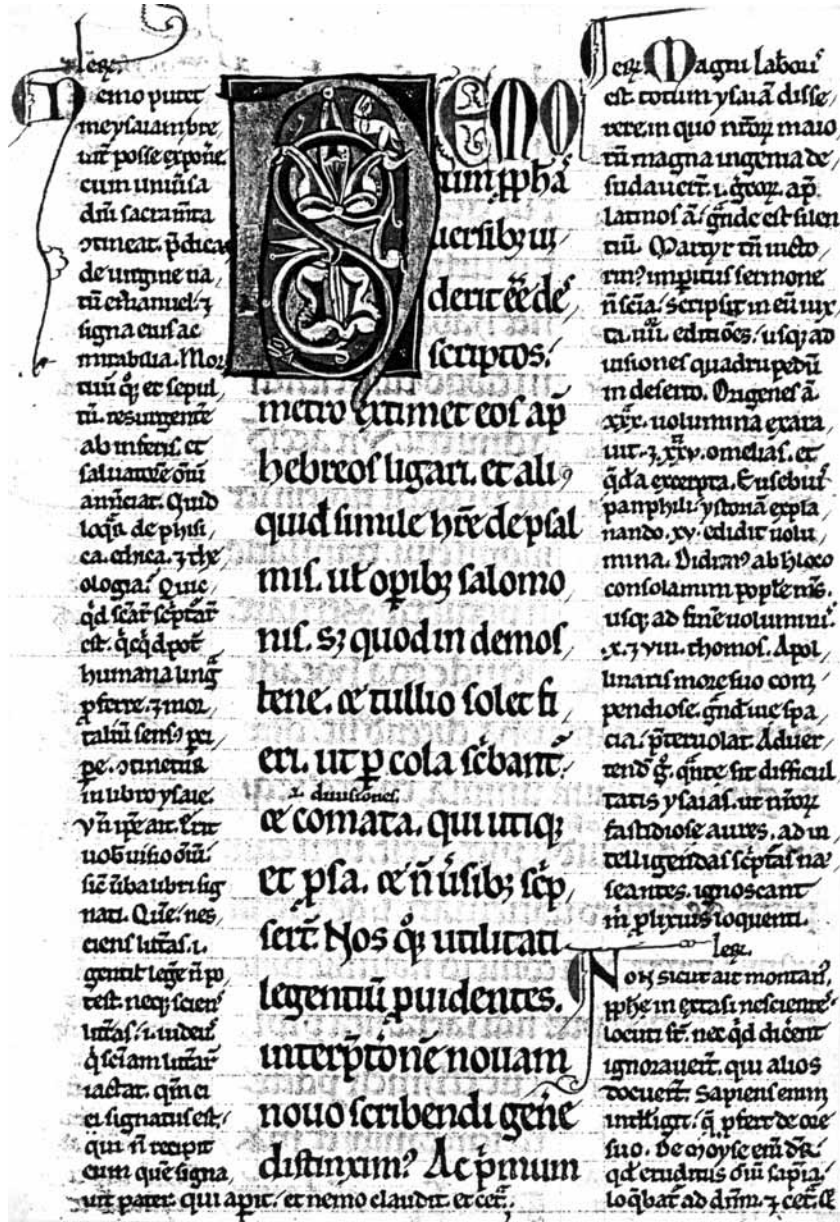 Ierͦ.
Nemo putet
me ysaiam bre
uit̄ posse expon̄e
cum uniū̄sa
dn̄i sacram̄ta
ↄtineat. p̄dicat᷒
de uirgine na
tū emanuel. ⁊
signa eius ac
mirabilia. Mor
tuū q̄ꝫ et sepul
tū. resurgente
ab inferis. et
saluatorē om̄iū
an̄unciat. Quid
loqr̄ de phisi
ca. ethica. ⁊ the
ologia? Quic
q̄d sc̄ar̄ sc̄ptar̄
est. q̄cq̄d pot̄
humana lingᷓ
ꝓferre. ⁊ mor
taliū sens᷒ ꝑci
pe. ↄtinetur
in libro ysaie.
Vn̄ ip̄e ait. Erit
uob̄ uisio om̄iū.
sic̄ ūba libri sig
nati. Quē nes
ciens litt̄as. i.
gentil̄ legē n̄ po
test. neqꝫ sciens
litt̄as. i. iudeus
q̄ se sc̄iam litt̄ar̄
iactat. qm̄ ei
ei signatus est.
qui n̄ recipit
eum quē signa
uit pater. qui aꝑit. et nemo claudit. et cet̄.
NEMO
cum ꝓph̄aˢ
uersibꝫ ui
derit eē de
scriptos.
metro extimet eos ap̄
hebreos ligari. et ali
quid simile hr̄e de psal
mis. ul̄ oꝑibꝫ salomo
nis. sꝫ quod in demos
tene. ⁊ tullio solet fi
eri. ut ꝑ cola sc̄bant᷒
.i. diuisiones.
⁊ comata. qui utiqꝫ
et ꝓsa. ⁊ n̄ ūsibꝫ sc̄p
sert̄. Nos q̄ꝫ utilitati
legentiū ꝓuidentes.
interp̄tōnē nouam
nouo scribendi gen̄e
distinxim᷒. Ac p̄mum
Ierͦ. Magni laboris
est totum ysaiā disse
rere in quo nr̄oꝝ maio
rū magna ingenia de
sudauert̄. i. grecoꝝ. ap̄
latinos ā. gn̄de est silen
tiū. Martyr tn̄ uicto
rin᷒. imꝑitus sermone
n̄ sc̄ia. scripsit in eū iux
ta nū. editōes. usqꝫ ad
uisiones quadrupedū
in deserto. Origenes ā
xxx. uolumina exara
uit. ⁊ xxv. omelias. et
q̄da excerpta. Eusebius
panphili. ystoriā expla
nando. xv. edidit uolu
mina. Didim᷒ ab h̄ loco
consolamini popl̄e ms̄.
usqꝫ ad finē uoluminis.
x. ⁊ viii. thomos. Apol
linaris more suo com
pendiose. gn̄diue spa
cia. p̄teruolat. Aduer
tend̄ ḡ. qn̄te sit difficul
tatis ysaias. ut nr̄oꝝ
fastidiose aures. ad in
telligendas sc̄ptas na
seantes. ignoscant
m̄ ꝓlixius loquenti.
Ierͦ.
Non sicut ait montan᷒
ꝓphē in extasi nesciente
locuti st̄. nec q̄d dicēnt
ignorauert̄. qui alios
docuert̄. Sapiens enim
intll̄igit. q̄ ꝓfert de ore
suo. De moyse em̄ dr̄.
qd̄ eruditus om̄i sapīa.
loq̄bat̄ ad dn̄m. ⁊ cet̄.